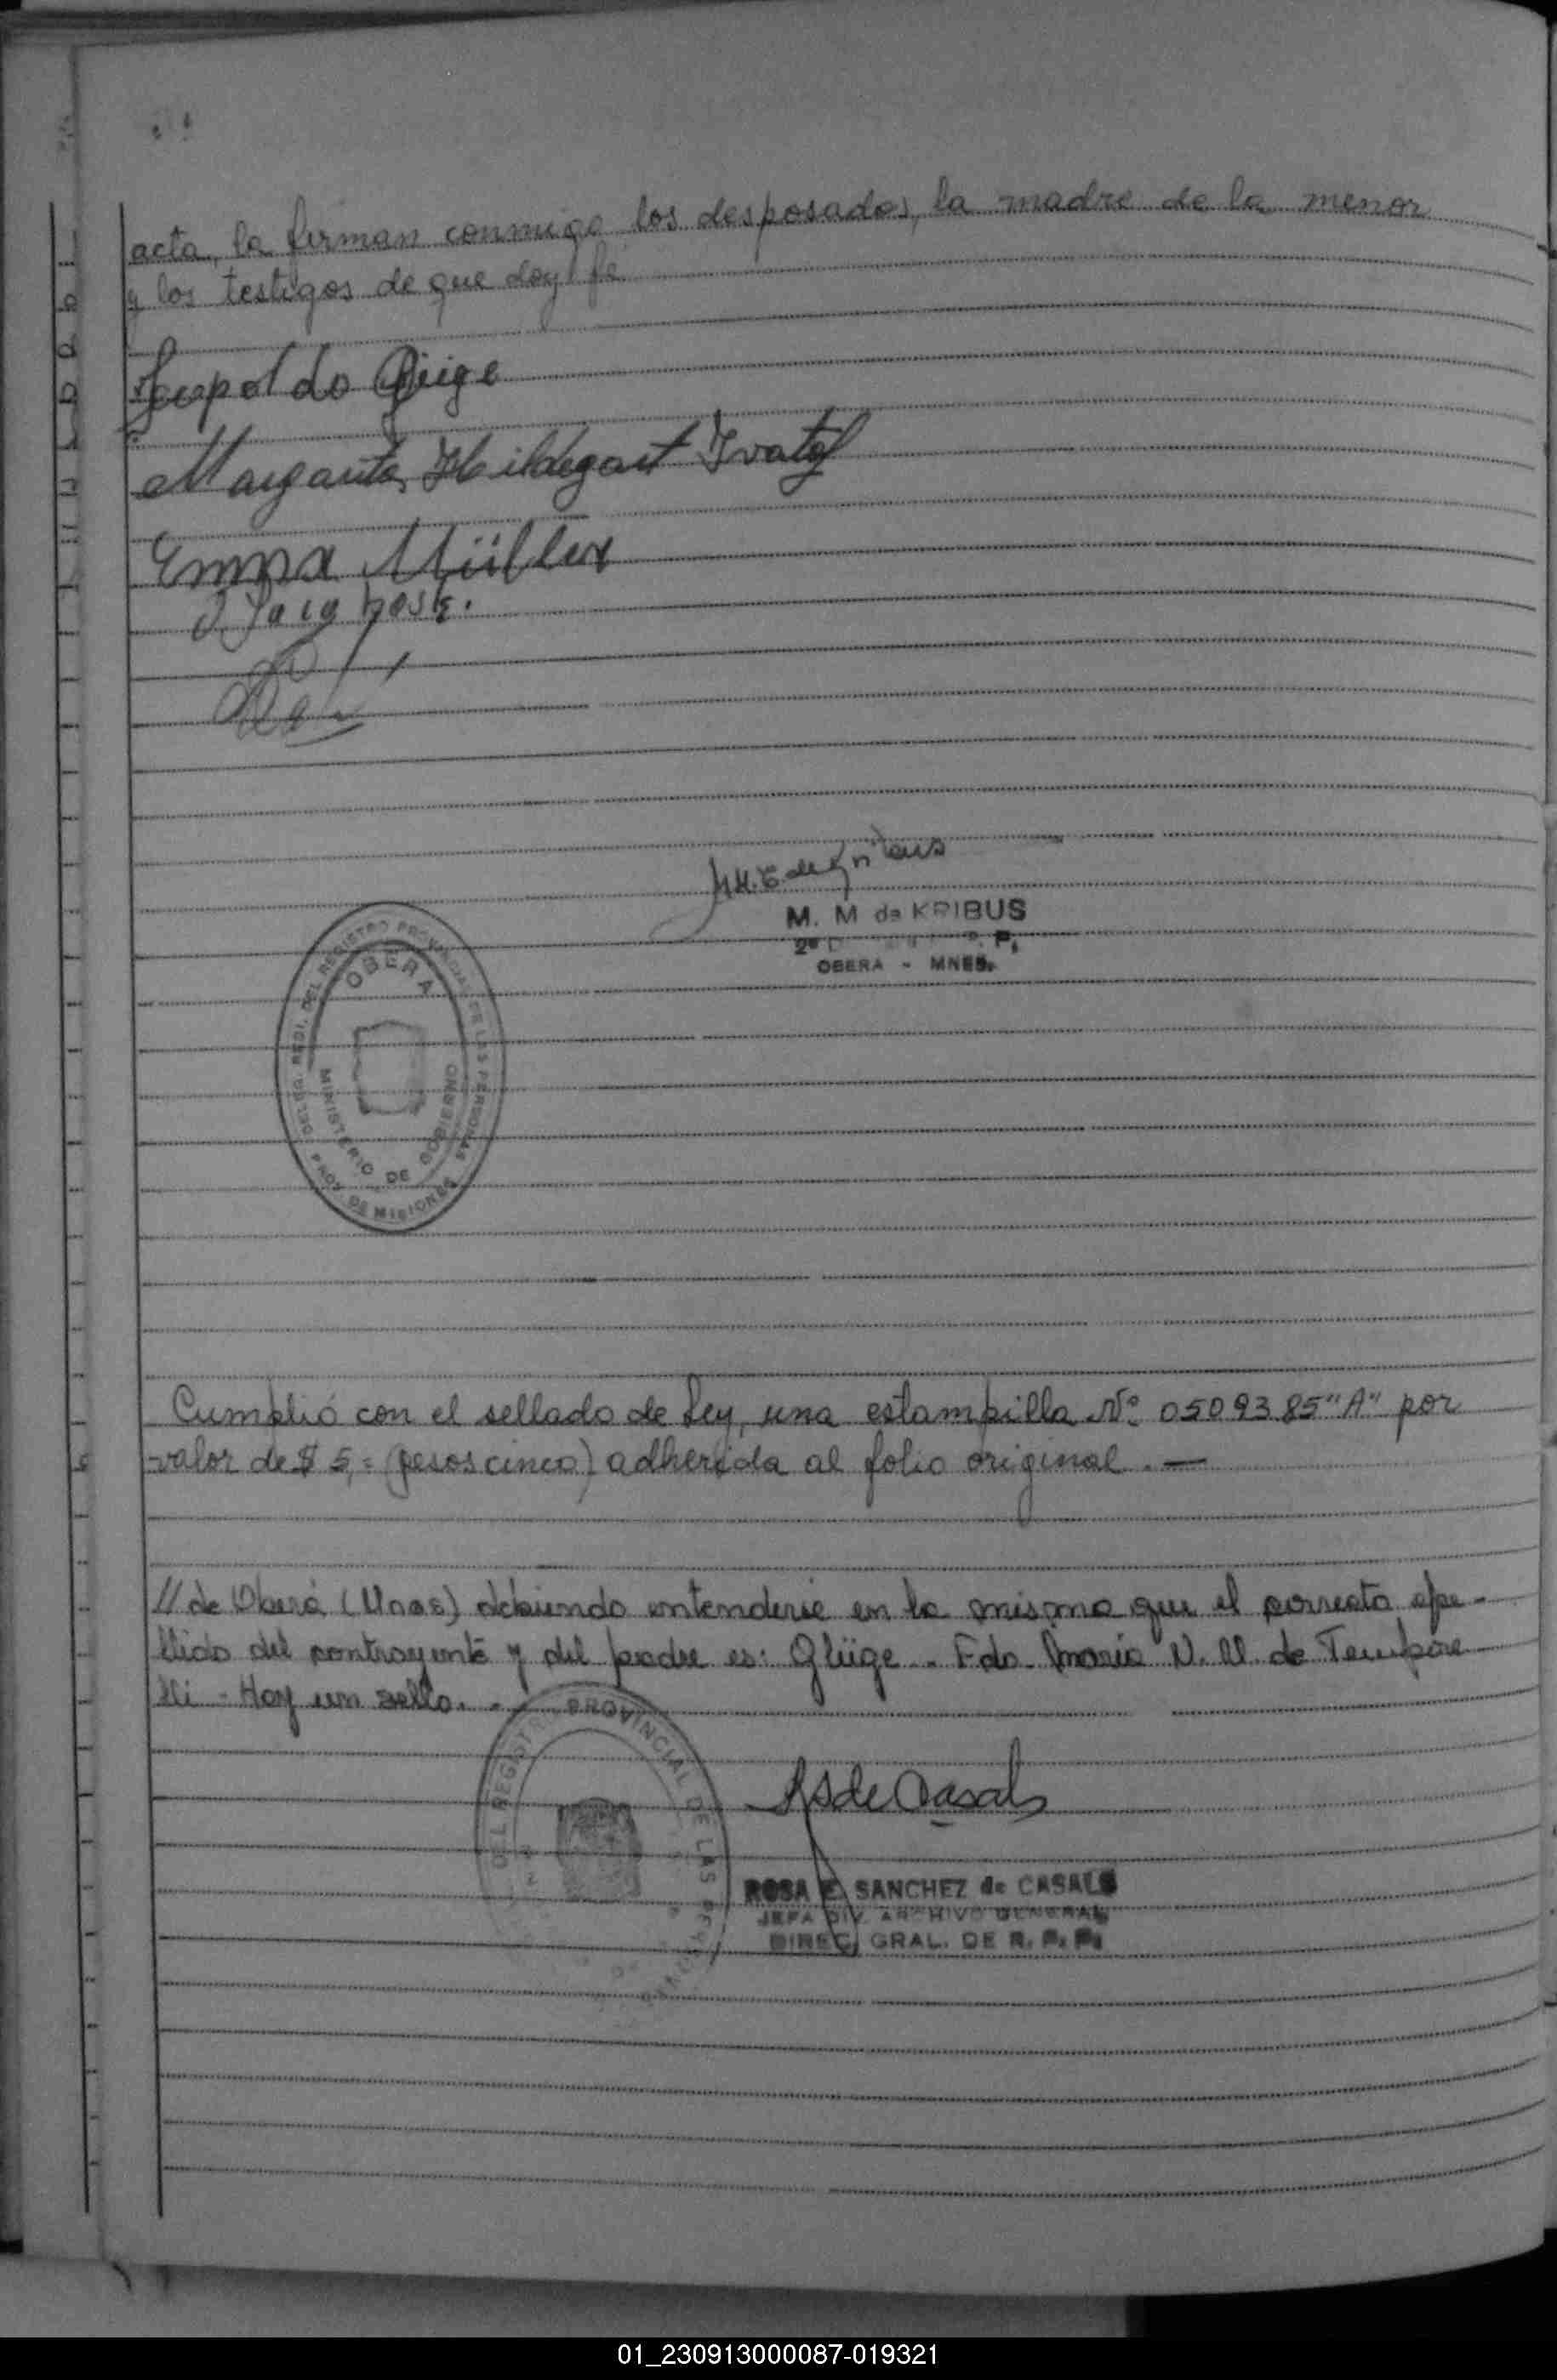 acta, la firman conmigo los desposados, la madre de la menor
y los testigos de que doy fé
Leopoldo Glüge
Margarita Hildegart
Emma Müller
M. M de KRIBUS
OBERA - MNES.
DEL REGISTRO PROVINCIAL DE LAS PERSONAS
OBERA
MINISTERIO DE GOBIERNO
PROV. DE MISIONES
Cumplió con el sellado de Ley, una estampilla Nº 0509385 "A" por
valor de $ 5,= (pesos cinco) adherida al folio original. —
// de Oberá (Mnes) debiendo entenderse en la misma que el correcto ape-
llido del contrayente y del padre es: Glüge. Fdo. María N. M. de Tempore
lli - Hay un sello. -
DEL REGISTRO PROVINCIAL DE LAS
RS de Casals
ROSA E. SANCHEZ de CASALS
JEFA DIV. ARCHIVO GENERAL
DIREC. GRAL. DE R. P. P.
01_230913000087-019321